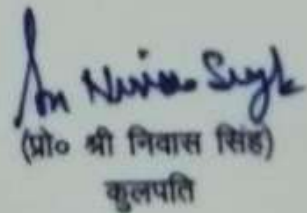 Sri Niwas Singh
(प्रो० श्री निवास सिंह)
कुलपति